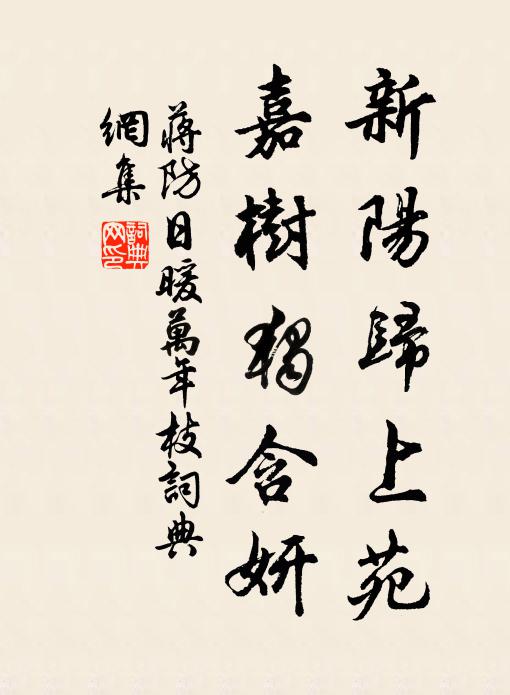 新陽歸上苑
嘉樹獨含妍
蔣防日暖萬年枝詞典
網集
詞典网印